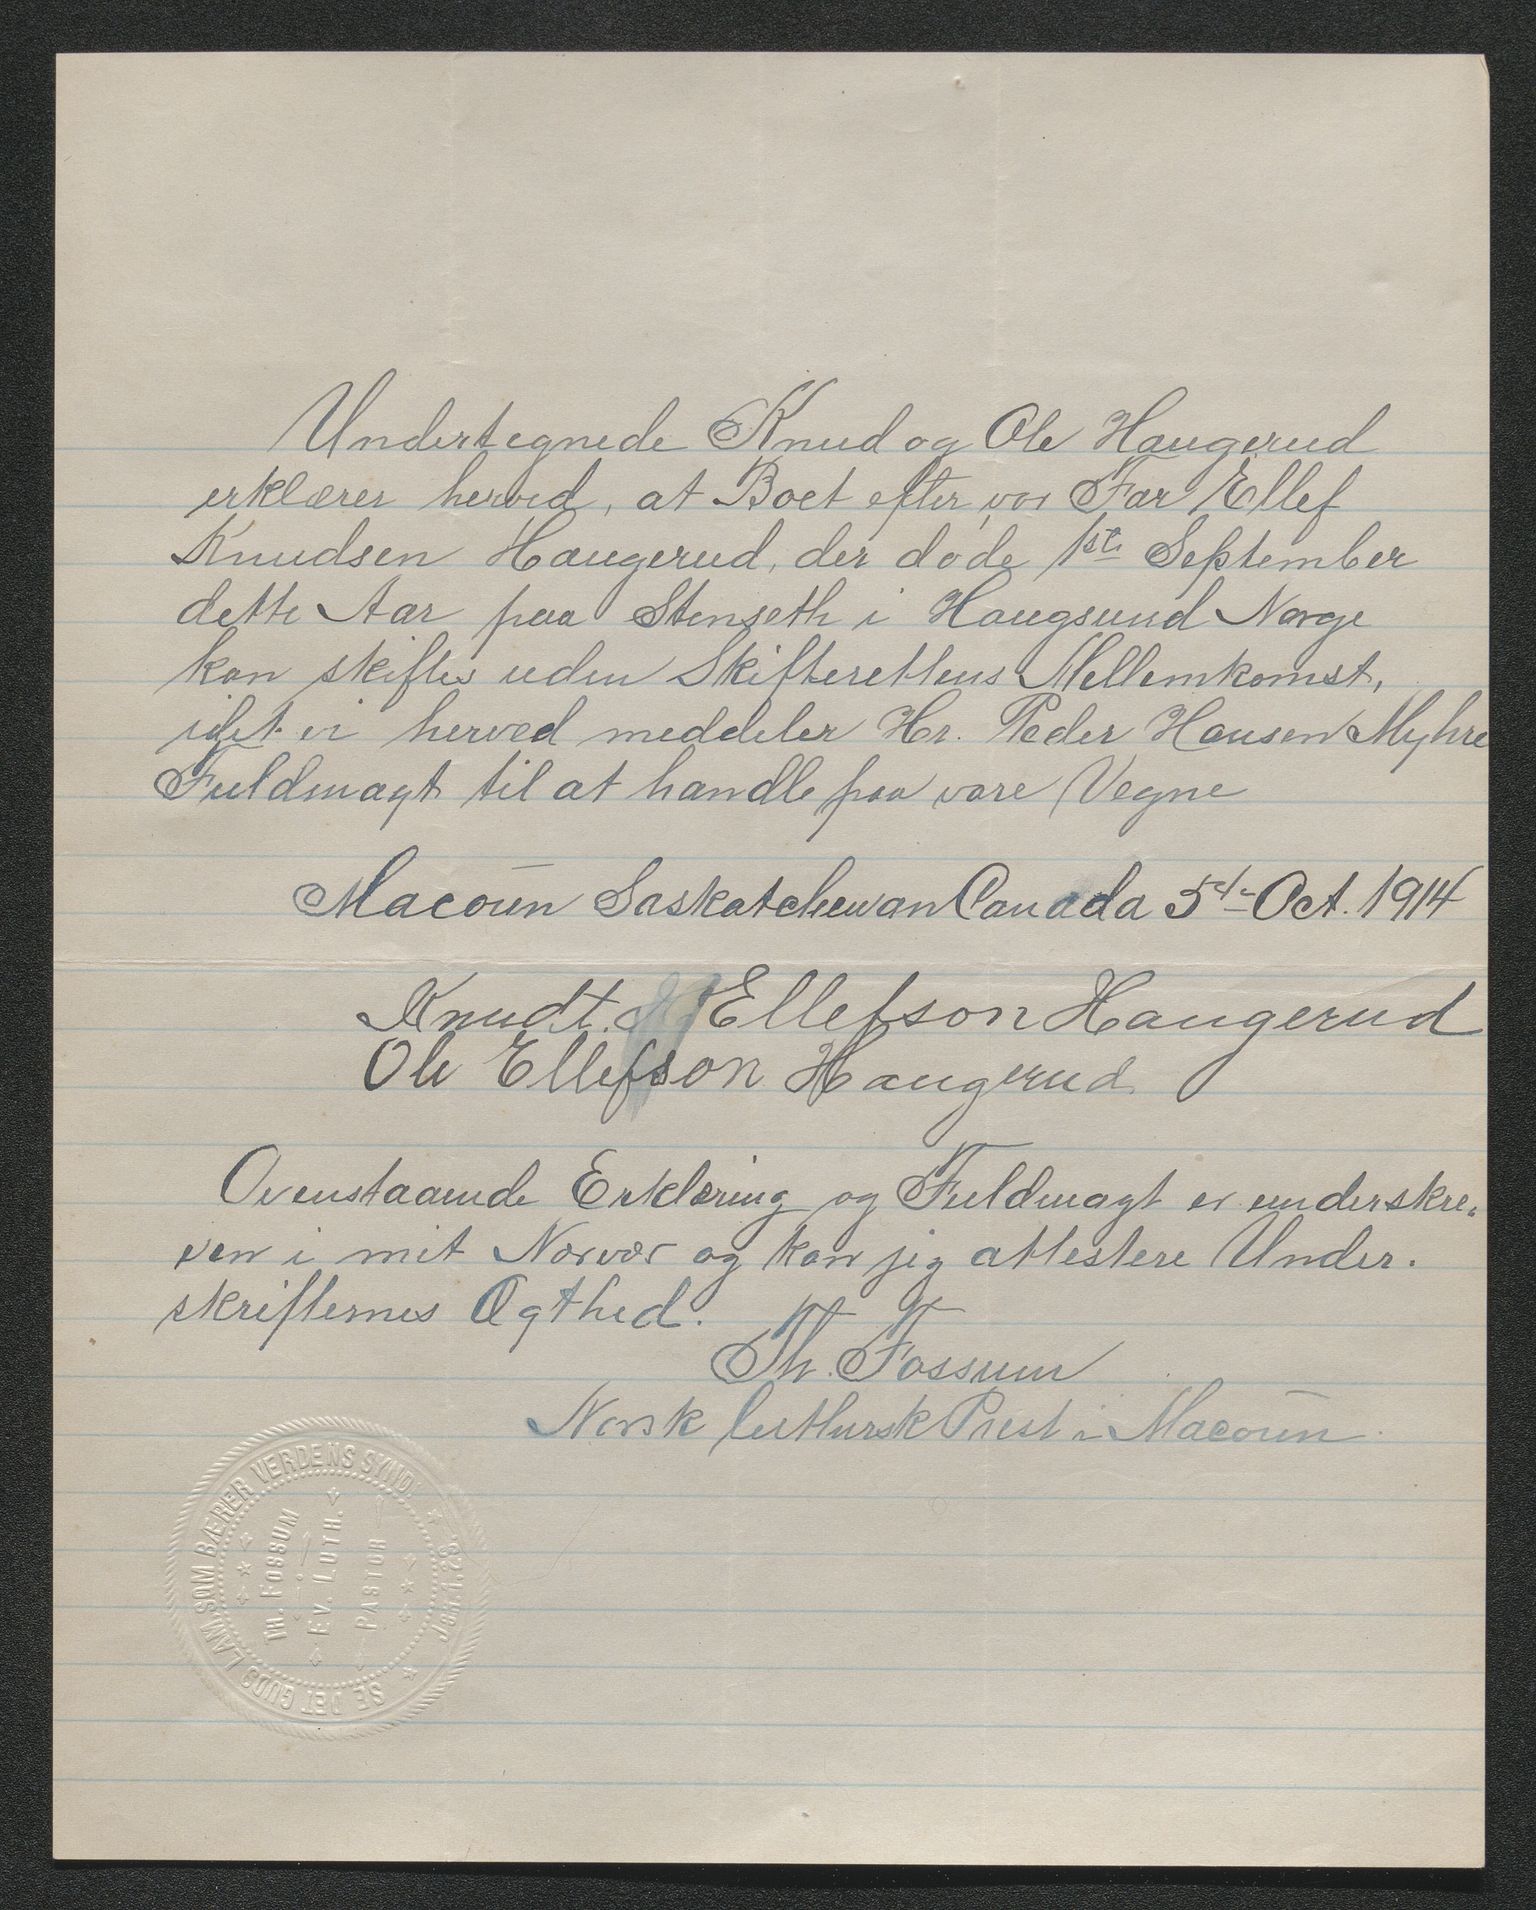 Undertegnede Knud og Ole Haugerud
erklærer herved, at Boet efter vor Far Ellef
Knudsen Haugerud, der døde 1ste September
dette Aar paa Stenseth i Hougsund Norge
kan skiftes uden Skifterettens Mellemkomst,
idet vi herved meddeler Hr. Peder Hansen Myhre
Fuldmagt til at handle paa vore Vegne
Macoun Saskatchewan Canada 5te Oct. 1914
Knudt. Ellefson Haugerud
Ole Ellefson Haugerud
Ovenstaaende Erklæring og Fuldmagt er underskre-
ven i mit Nærvær og kan jeg attestere Under-
skrifternes Ægthed.
Th. Fossum
Norsk luthersk Prest i Macoun
SE DET GUDS LAM SOM BÆRER VERDENS SYND
JOH. 1. 29
TH. FOSSUM
EV. LUTH.
PASTOR